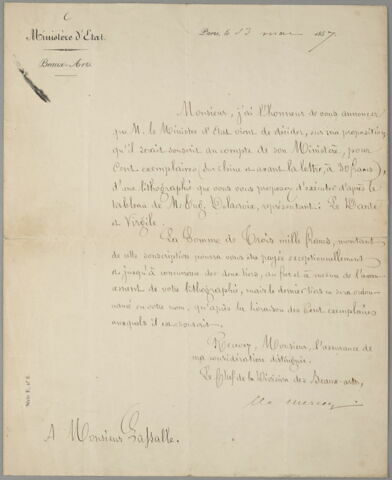 Ministère d'État.
Beaux-Arts.
Paris, le 13 mai 1857
Monsieur, j'ai l'honneur de vous annoncer
que M. le Ministre d'État vient de décider, sur ma proposition,
qu'il serait souscrit au compte de son Ministère, pour
Cent exemplaires (sur chine et avant la lettre, à 30 francs),
d'une lithographie que vous vous proposez d'exécuter d'après le
tableau de M. Eug. Delacroix, représentant : Le Dante
et Virgile.
La Somme de Trois mille francs, montant
de cette souscription pourra vous être payée exceptionnellement
et jusqu'à concurrence des deux tiers, au fur et à mesure de l'avan-
cement de votre lithographie, mais le dernier tiers ne sera ordon-
nancé en votre nom, qu'après la livraison des Cent exemplaires
auxquels il est souscrit.
Recevez, Monsieur, l'assurance de
ma considération distinguée.
Le Chef de la Division des Beaux-arts,
De Mercey
A Monsieur Lassalle.
Série E. n° 2.